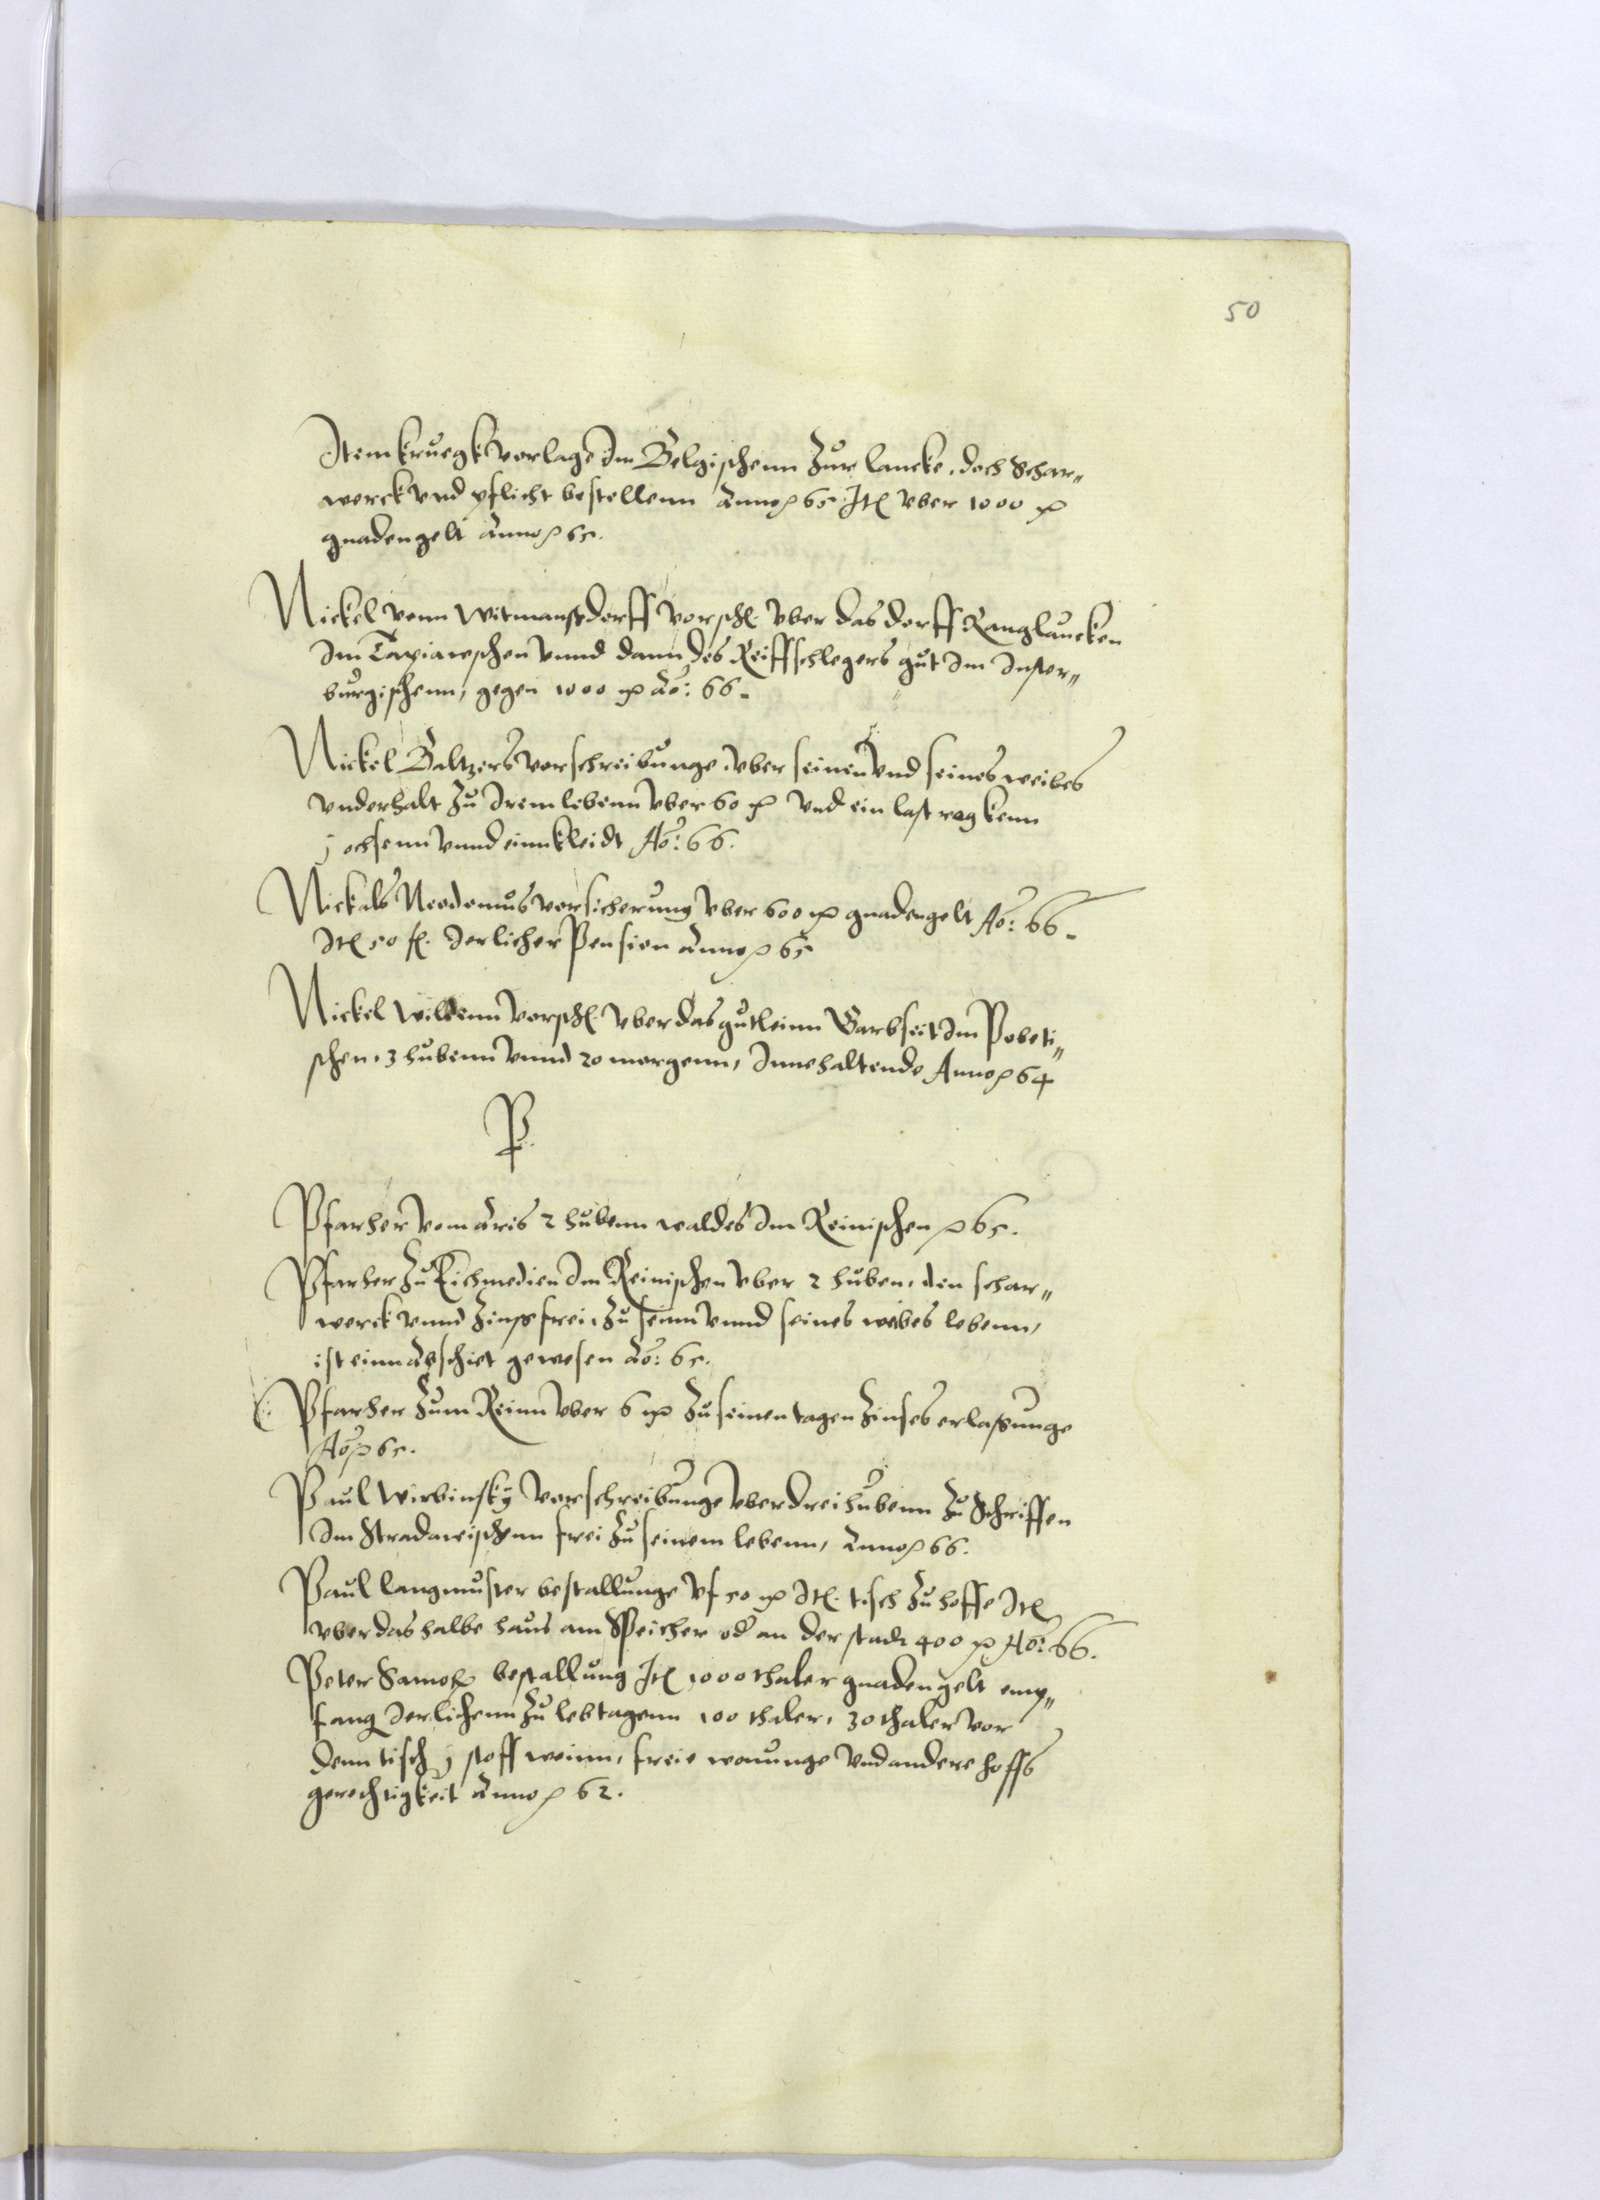 50
Item kruegk vorlage Im Balgischenn Zur lancke, doch Schar„
werck vnd pflicht bestellenn Anno ꝛc 65 Itē vber 1000 mꝝ
gnadengelt Anno ꝛc 65.
Nickel vonn Witmanßdorff vorschꝭ vber das dorff Ranglaucken
Im Tapiawschen vnnd dann des Reiffschlegers gut Im Inster„
burgischenn, gegen 1000 mꝝ Ao: 66.
Nickel Baltzers vorschreibunge, vber seinen vnd seines weibes
vnderhalt Zu Irem lebenn vber 60 mꝝ vnd ein last rogkenn
j ochsenn vnnd einn kleidt Ao: 66.
Nickals Neodomus vorsicherung vber 600 mꝝ gnadengelt Ao: 66.
Itē 50 fl. Jerlicher Pension Anno ꝛc 65
Nickel Wilkenn vorschꝭ vber das gutleinn Garbseit Im Pobeti„
schen, 3 hubenn vnnd 20 morgenn, Innehaltende Anno ꝛc 64
P.
Pfarher vom Aris 2 hubenn waldes Im Reinischen ꝛc 65.
Pfarher Zu Eichmedien Im Reinischen vber 2 huben, den schar„
werck vnnd Zinß frei, Zu seinn vnnd seines weibes lebenn,
ist einn Abschiet gewesen Ao: 65.
Pfarher Zum Reinn vber 6 mꝝ Zu seinen tagen Zinses erlaßunge
Ao ꝛc 65.
Paul Wirbinsky vorschreibunge vber drei hubenn Zu Schriffen
Im Stradawischenn frei Zu seinem lebenn, Anno ꝛc 66.
Paul langmuster bestallunge vf 50 mꝝ Itē. tisch Zu hoffe Itē
vber das halbe haus am Speicher od an der stadt 400 mꝝ Ao: 66.
Peter bestallung Itē 1000 thaler gnadengelt emp„
fang Jerlichenn Zu lebtagenn 100 thaler, 30 thaler vor
denn tisch j stoff weinn, freie wonunge vnd andere hoffs
gerechtigkeit Anno ꝛc 62.